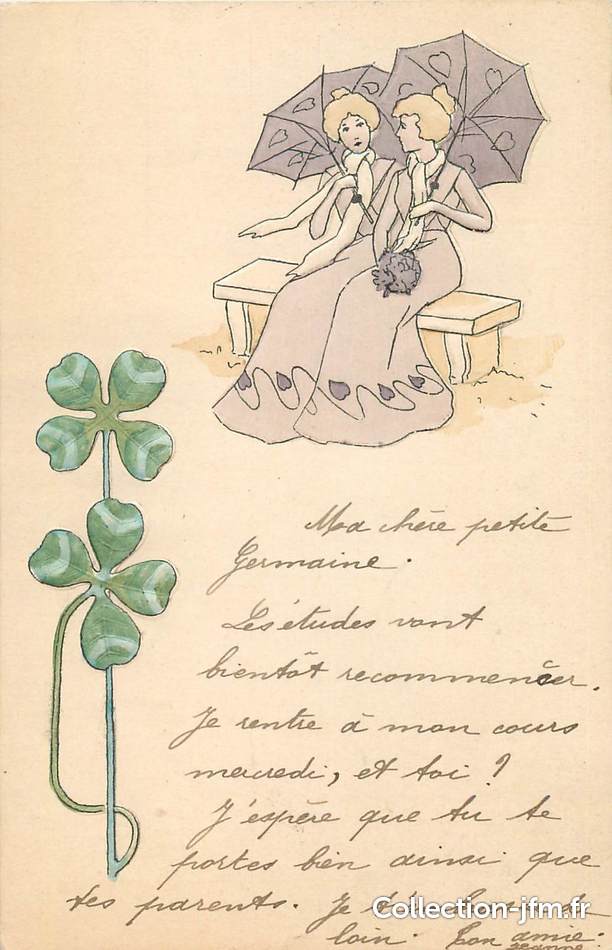 Ma chère petite
Germaine.
Les études vont
bientôt recommencer.
Je rentre à mon cours
mercredi, et toi ?
J'espère que tu te
portes bien ainsi que
tes parents. Je
loin. Ton amie.
Jeanne
Collection-jfm.fr